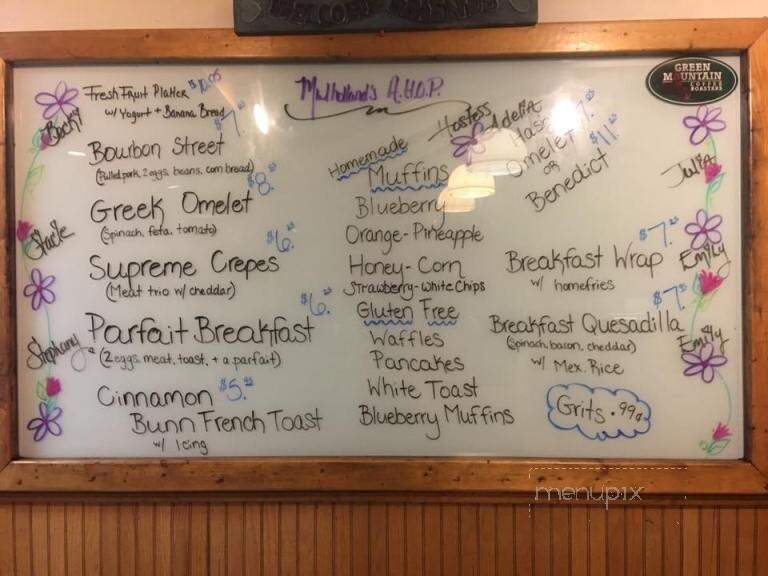 GREEN
MOUNTAIN
COFFEE
ROASTERS
Mulholland's A.H.O.P.
Becky
Stacie
Stephany
Fresh Fruit Platter $10.95
w/ Yogurt + Banana Bread
Bourbon Street
(Pulled pork, 2 eggs, beans, corn bread)
Greek Omelet $8.
(Spinach, feta, tomato)
Supreme Crepes $6.
(Meat trio w/ cheddar)
Parfait Breakfast $6.
(2 eggs, meat, toast, + a parfait)
Cinnamon $5.
Bunn French Toast
w/ Icing
Homemade
Muffins
Blueberry
Orange-Pineapple
Honey-Corn
Strawberry-White Chips
Gluten Free
Waffles
Pancakes
White Toast
Blueberry Muffins
Hostess
Adelia
Omelet
or
Benedict $11.
Breakfast Wrap $7.
w/ homefries
Breakfast Quesadilla $7.
(Spinach, bacon, cheddar)
w/ Mex. Rice
Grits .99¢
Julia
Emily
Emily
menupix